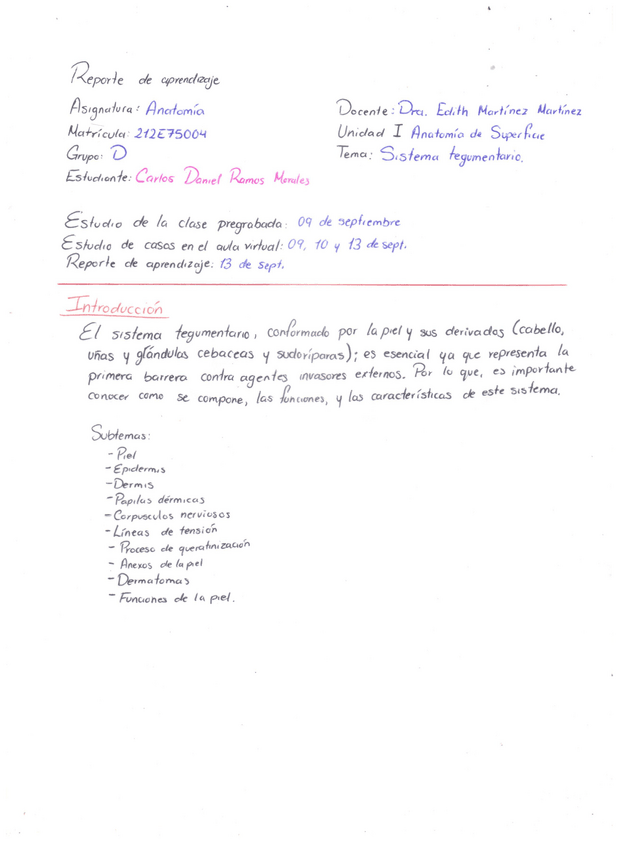 Reporte de aprendizaje
Asignatura: Anatomía
Docente: Dra. Edith Martínez Martínez
Matrícula: 212E75004
Unidad I Anatomía de Superficie
Grupo: D
Tema: Sistema tegumentario.
Estudiante: Carlos Daniel Ramos Morales
Estudio de la clase pregrabada: 09 de septiembre
Estudio de casos en el aula virtual: 09, 10 y 13 de sept.
Reporte de aprendizaje: 13 de sept.
Introducción
El sistema tegumentario, conformado por la piel y sus derivados (cabello,
uñas y glándulas cebaceas y sudoríparas); es esencial ya que representa la
primera barrera contra agentes invasores externos. Por lo que, es importante
conocer como se compone, las funciones, y las características de este sistema.
Subtemas:
- Piel
- Epidermis
- Dermis
- Papilas dérmicas
- Corpusculos nerviosos
- Líneas de tensión
- Proceso de queratinización
- Anexos de la piel
- Dermatomas
- Funciones de la piel.